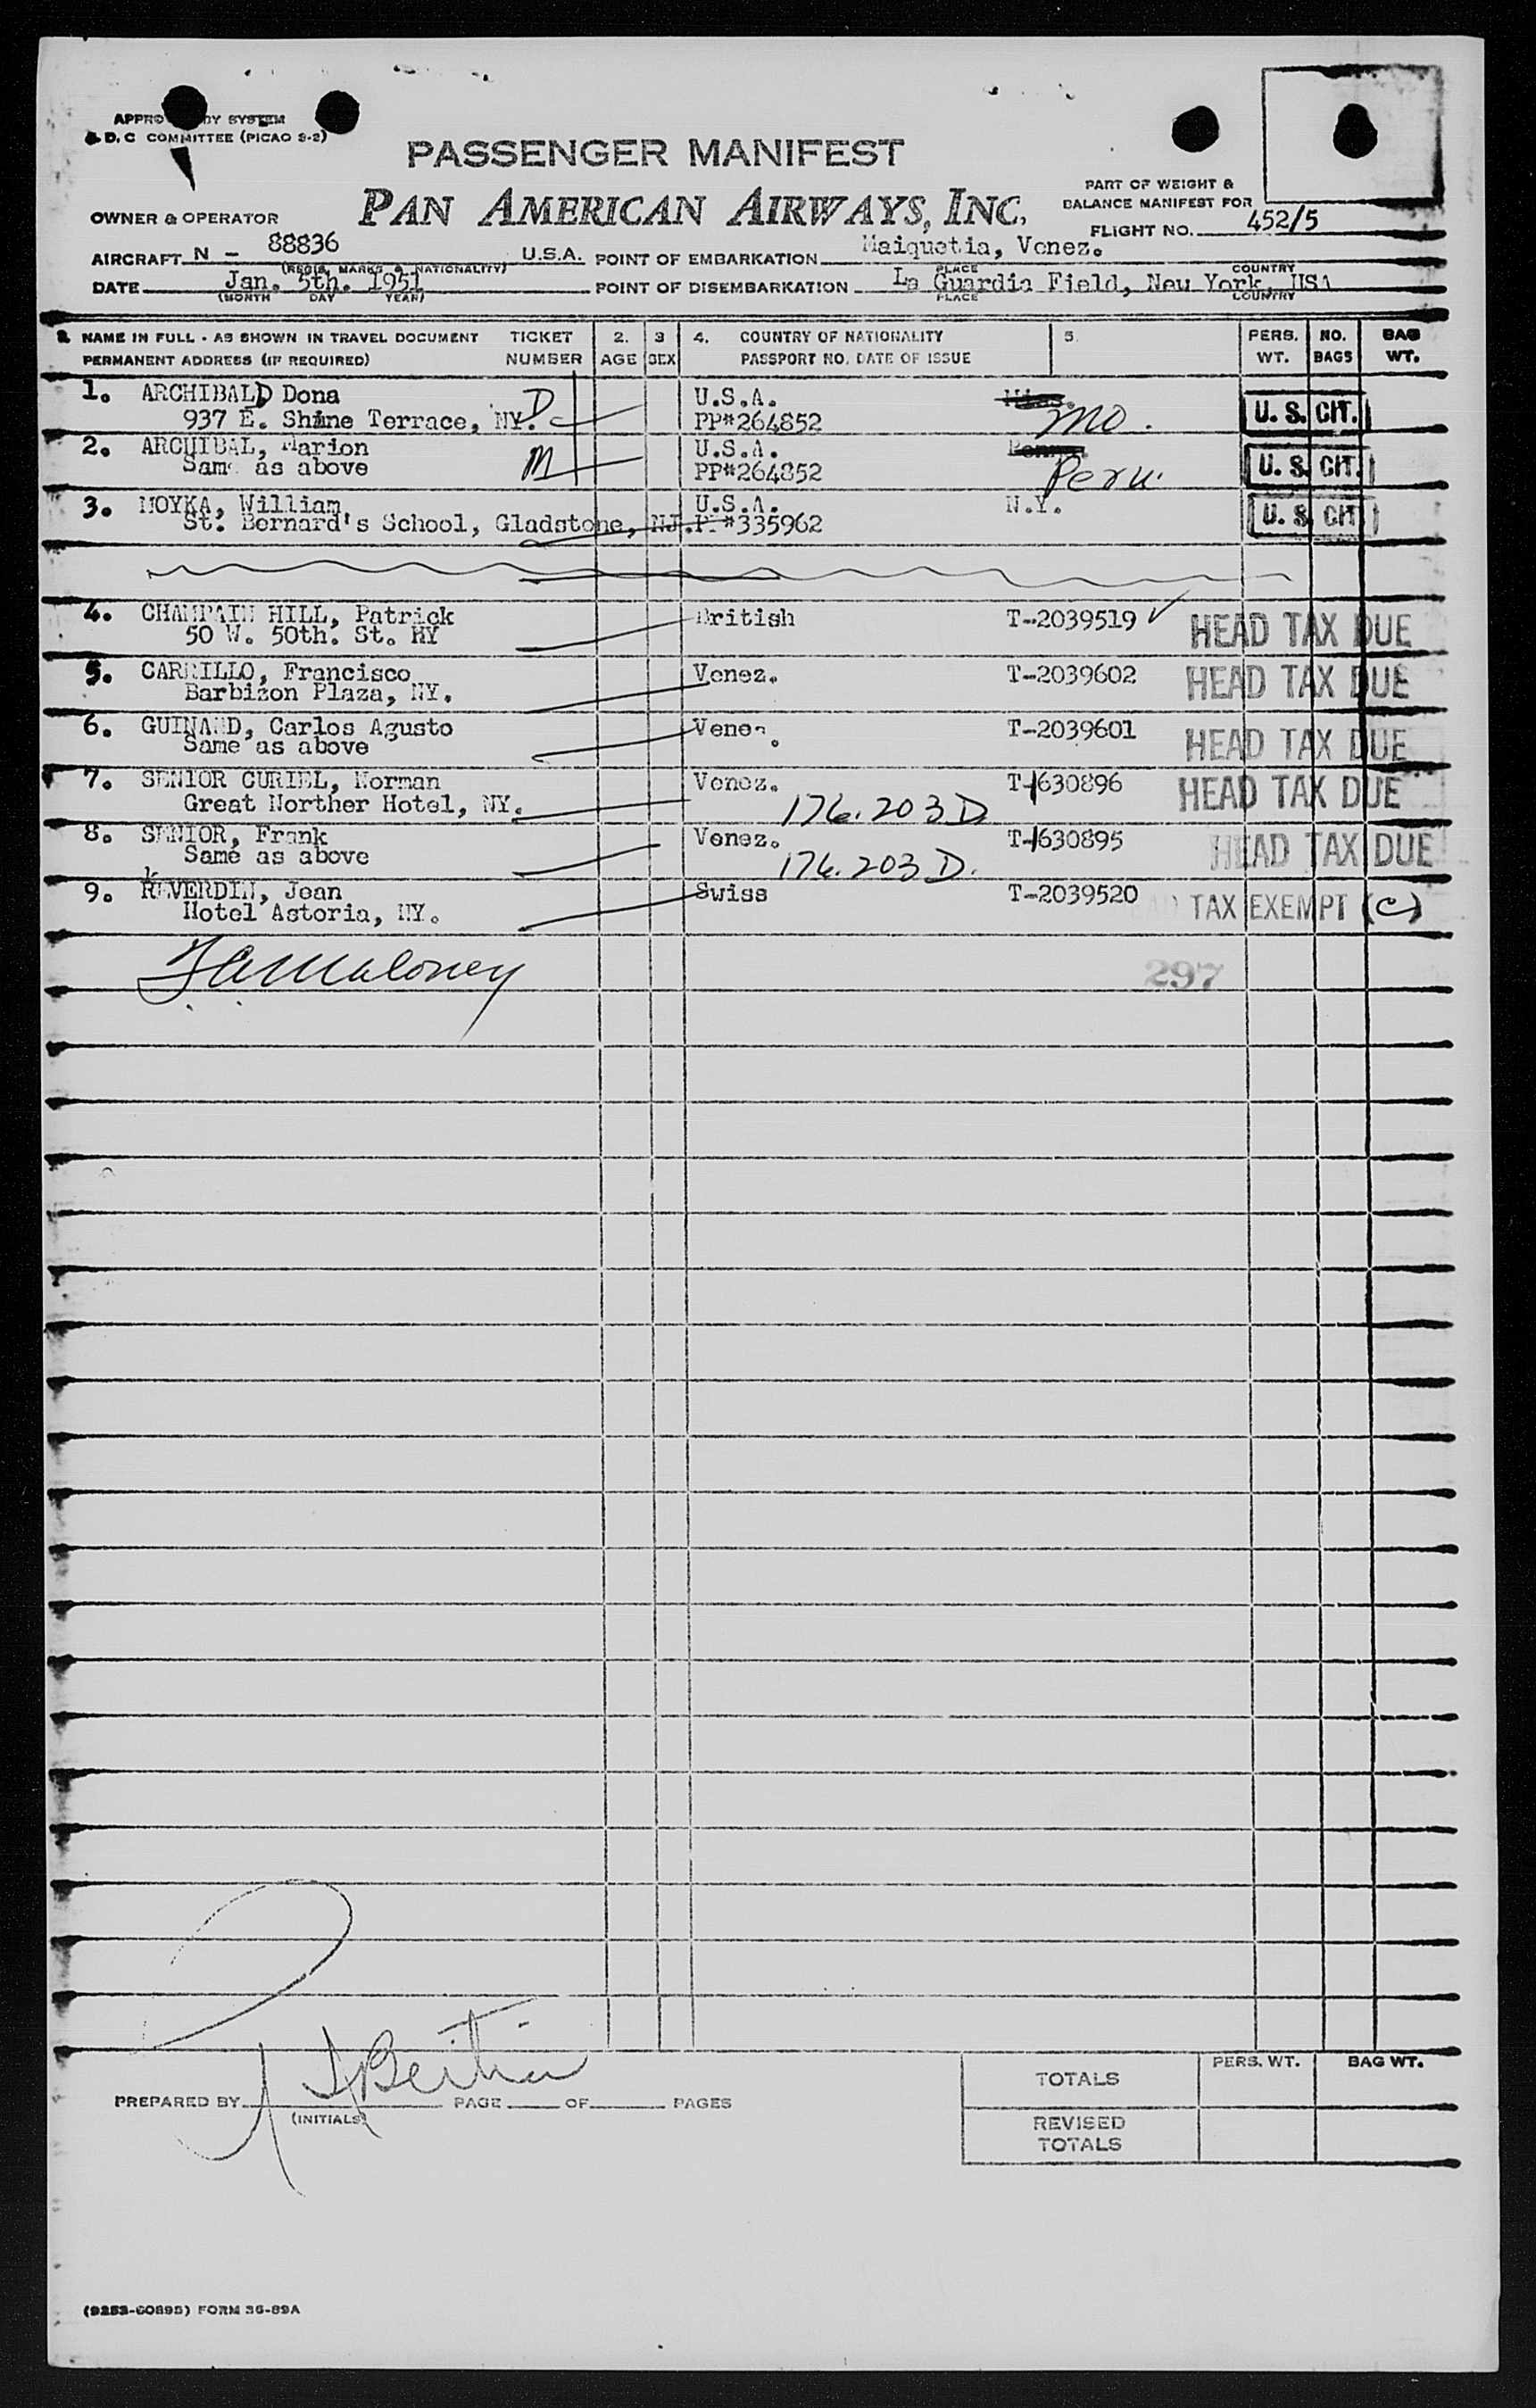 BY SYSTEM
& D.C COMMITTEE (PICAO 2-2)
PASSENGER MANIFEST
PAN AMERICAN AIRWAYS, INC.
PART OF WEIGHT &
BALANCE MANIFEST FOR
FLIGHT NO. 452/5
OWNER & OPERATOR
AIRCRAFT N - 88836 U.S.A. POINT OF EMBARKATION Maiquetia, Venez.
(REGIS. MARKS & NATIONALITY) PLACE COUNTRY
DATE Jan. 5th. 1951 POINT OF DISEMBARKATION La Guardia Field, New York, USA
(MONTH DAY YEAR) PLACE COUNTRY
NAME IN FULL - AS SHOWN IN TRAVEL DOCUMENT TICKET 2. 3 4. COUNTRY OF NATIONALITY 5. PERS. NO. BAG
PERMANENT ADDRESS (IF REQUIRED) NUMBER AGE SEX PASSPORT NO. DATE OF ISSUE WT. BAGS WT.
1. ARCHIBALD Dona D U.S.A. U. S. CIT.
937 E. Shine Terrace, NY. PP#264852 Mo.
2. ARCHIBAL, Marion M U.S.A. U. S. CIT.
Same as above PP#264852 Penn.
3. MOYKA, William U.S.A. N.Y. U. S. CIT
St. Bernard's School, Gladstone, NJ. PP#335962
4. CHAMPAIN HILL, Patrick British T-2039519 HEAD TAX DUE
50 W. 50th. St. NY
5. CARRILLO, Francisco Venez. T-2039602 HEAD TAX DUE
Barbizon Plaza, NY.
6. GUINAND, Carlos Agusto Venez. T-2039601 HEAD TAX DUE
Same as above
7. SENIOR CURIEL, Norman Venez. T-1630896 HEAD TAX DUE
Great Norther Hotel, NY. 176.203 D
8. SENIOR, Frank Venez. T-1630895 HEAD TAX DUE
Same as above 176.203 D.
9. REVERDIN, Jean Swiss T-2039520 TAX EXEMPT (c)
Hotel Astoria, NY.
Maloney 297
PREPARED BY PAGE OF PAGES
(INITIALS)
TOTALS PERS. WT. BAG WT.
REVISED
TOTALS
(9253-60895) FORM 36-89A